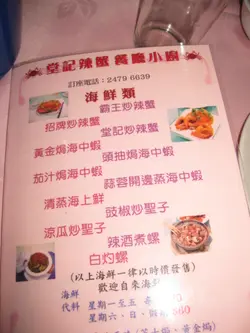 堂記辣蟹餐廳小廚
訂座電話：2479 6639
海鮮類
霸王炒辣蟹
招牌炒辣蟹
堂記炒辣蟹
黃金焗海中蝦
頭抽焗海中蝦
茄汁焗海中蝦
蒜蓉開邊蒸海中蝦
清蒸海上鮮
豉椒炒聖子
涼瓜炒聖子
辣酒煮螺
白灼螺
(以上海鮮一律以時價發售)
歡迎自來海鮮
海鮮
代料
星期一至五
星期六．日